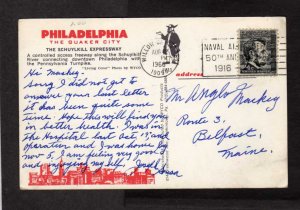 PHILADELPHIA
THE QUAKER CITY
THE SCHUYLKILL EXPRESSWAY
A controlled access freeway along the Schuylkill
River connecting downtown Philadelphia with
Pennsylvania Turnpike.
Photo by
Hi Mackey.
Sorry I did not get to
answer your last letter
it has been quite some
time. Hope this will find you
in better health. I was in
the Hospital last Oct, 13, and
operation and I was home by
Nov 5, I am feeling very good
and enjoying myself,
AUG
PM
1966
NAVAL AI
50TH AN
1916
address
Mr Anglo Mackey
Route 3,
Belfast,
Maine.